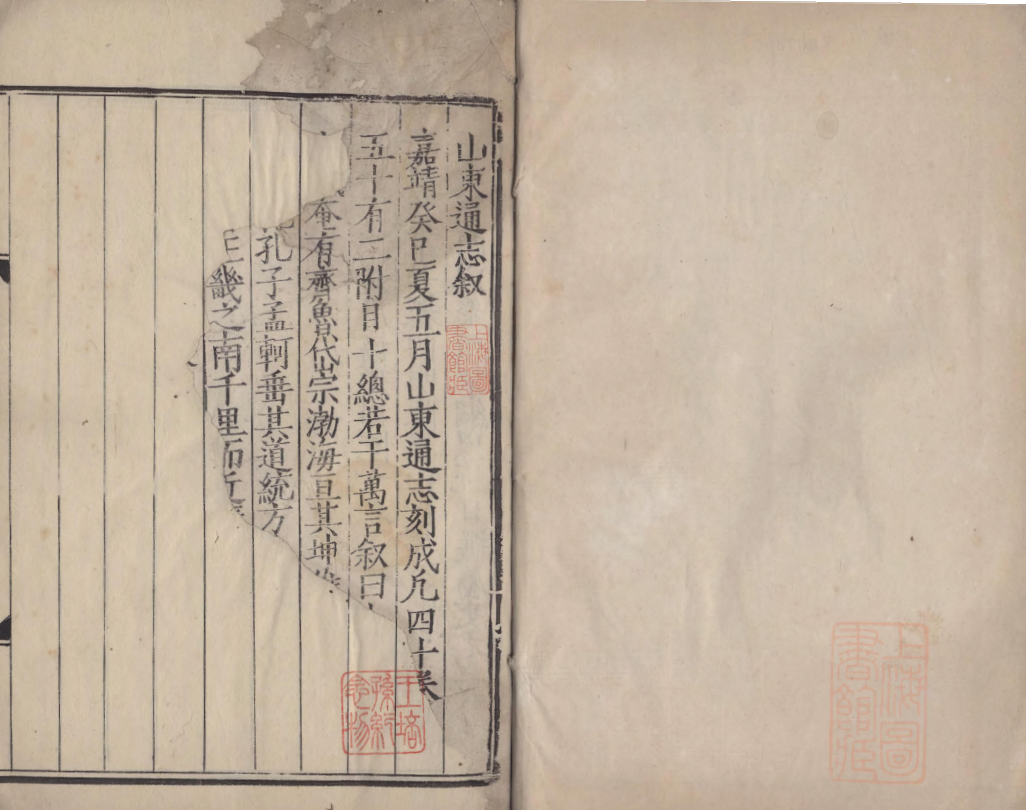 山東通志叙
嘉靖癸巳夏五月山東通志刻成凡四十卷
五十有二附目十總若干萬言叙曰
奄有齊魯岱宗渤海亘其坤
孔子孟軻垂其道統方
王畿之南千里而近
上海圖書館藏
王培孫紀念物
上海圖書館藏